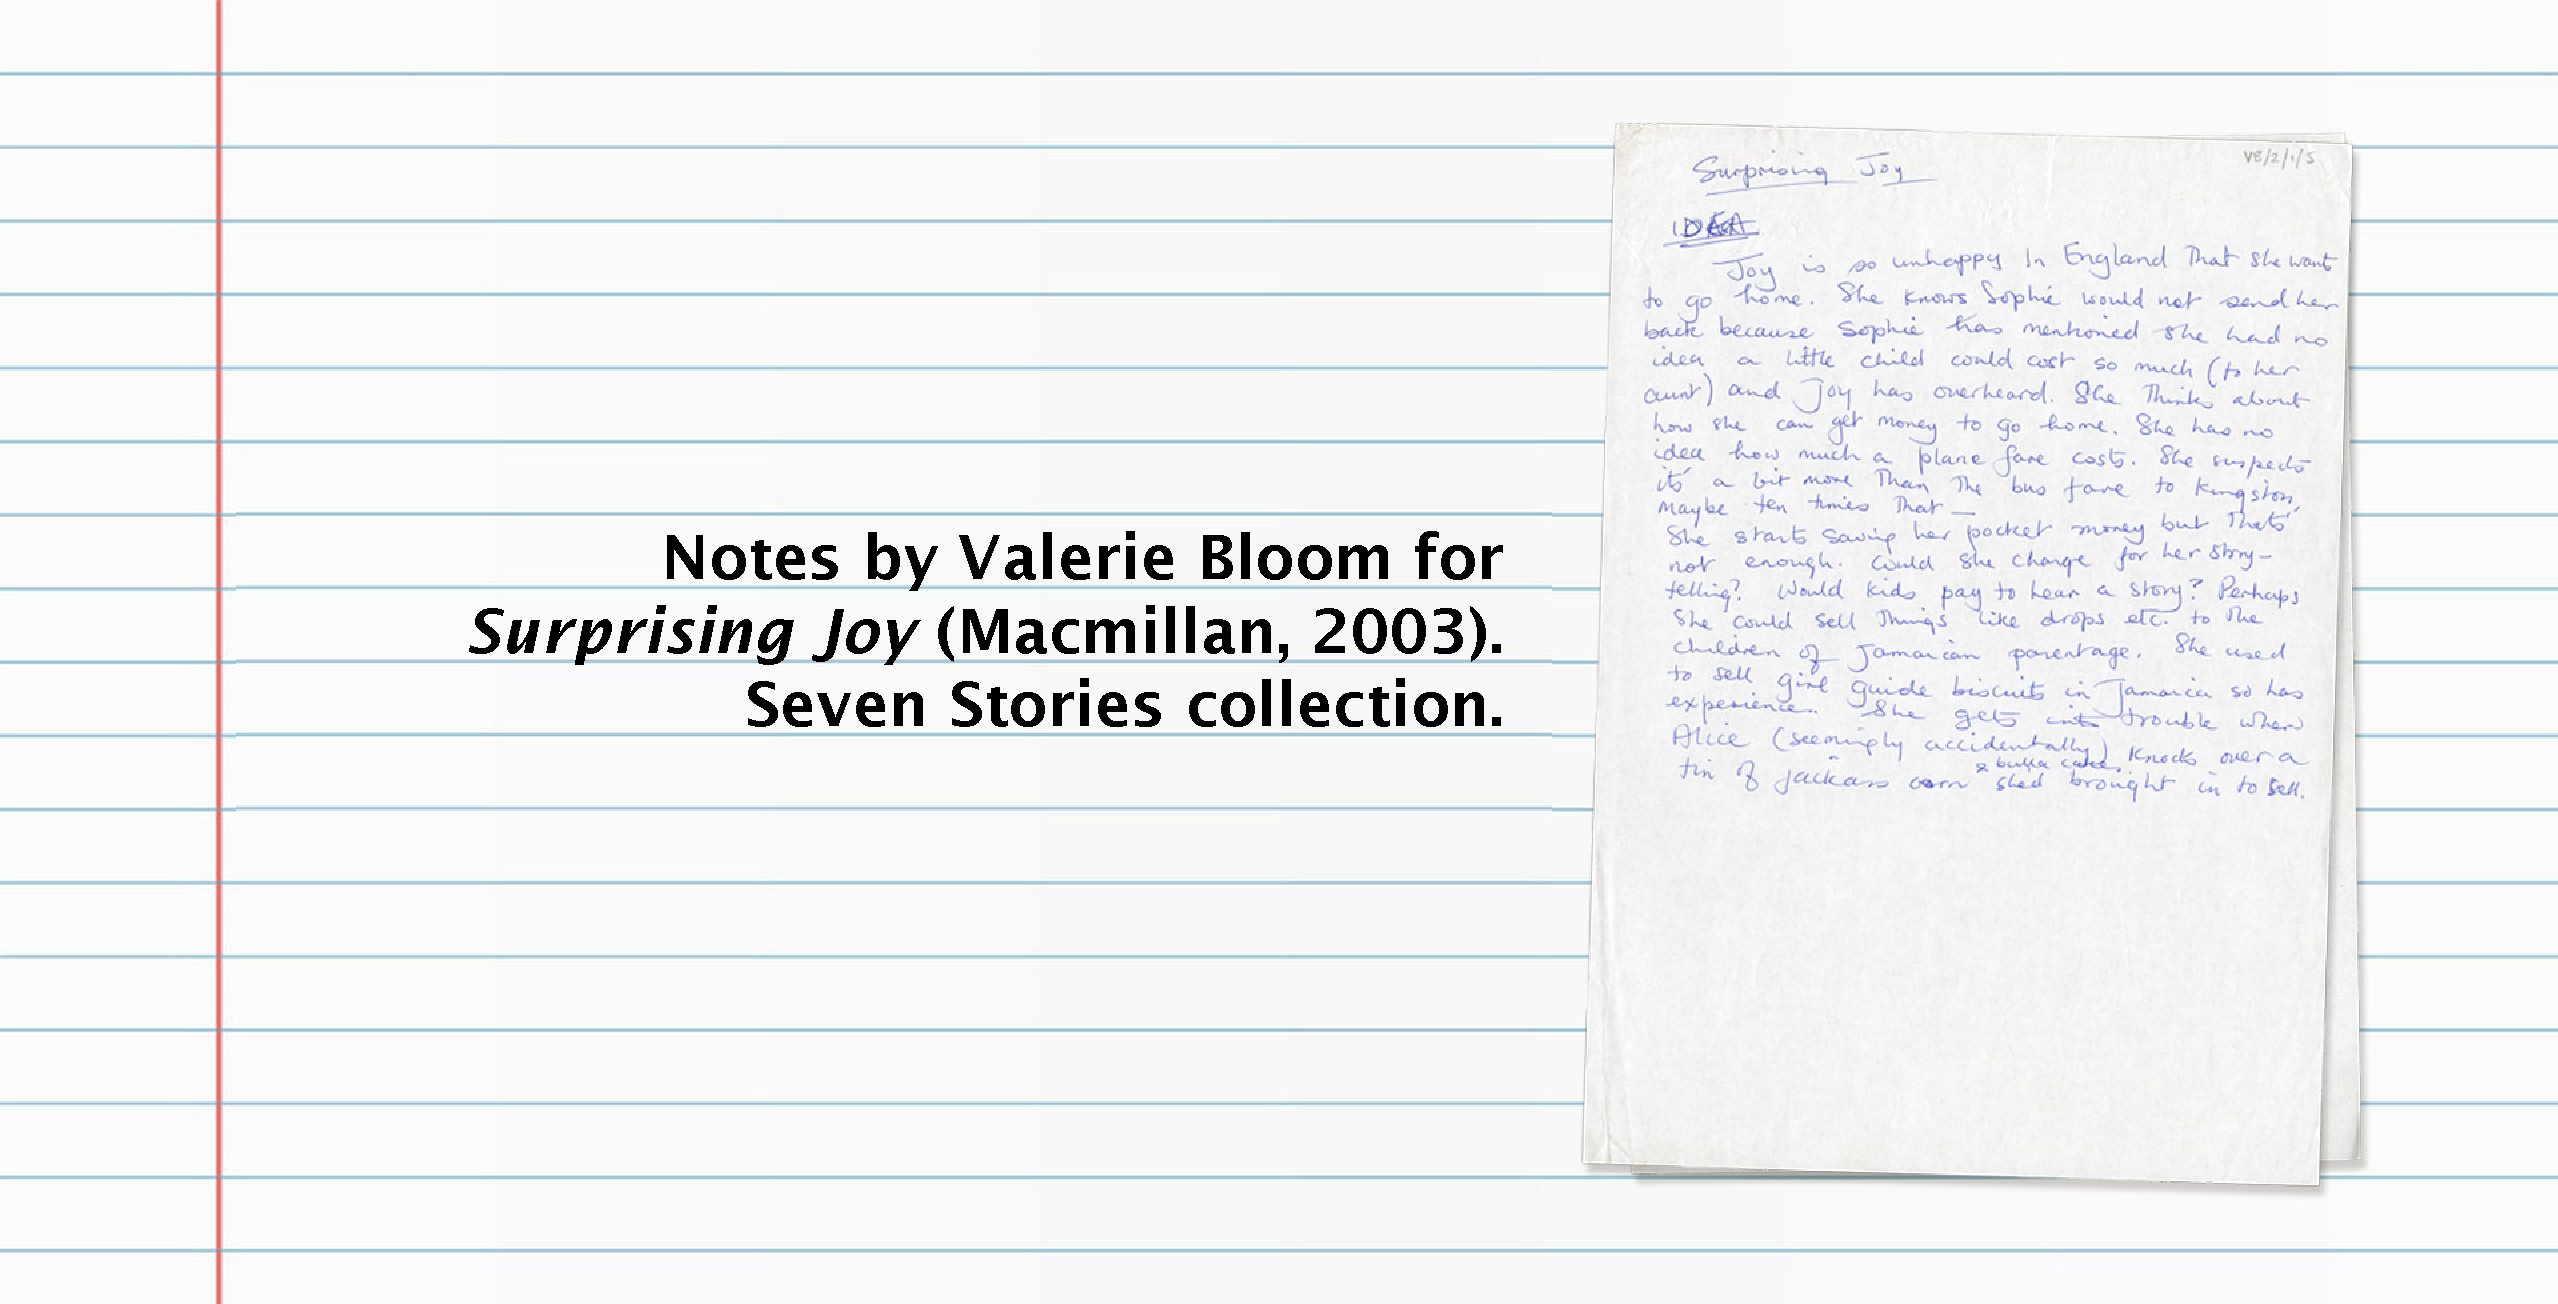 Notes by Valerie Bloom for
Surprising Joy (Macmillan, 2003).
Seven Stories collection.
VB/2/1/5
Surprising Joy
IDEA
Joy is so unhappy in England that she want
to go home. She knows Sophie would not send her
back because Sophie has mentioned she had no
idea a little child could cost so much (to her
aunt) and Joy has overheard. She thinks about
how she can get money to go home. She has no
idea how much a plane fare costs. She suspects
its' a bit more than the bus fare to Kingston,
maybe ten times that —
She starts saving her pocket money but thats'
not enough. Could she charge for her story-
telling? Would kids pay to hear a story? Perhaps
she could sell things like drops etc. to the
children of Jamaican parentage. She used
to sell girl guide biscuits in Jamaica so has
experience. She gets into trouble when
Alice (seemingly accidentally) knocks over a
tin of jackass corn & bulla cake shed brought in to sell.